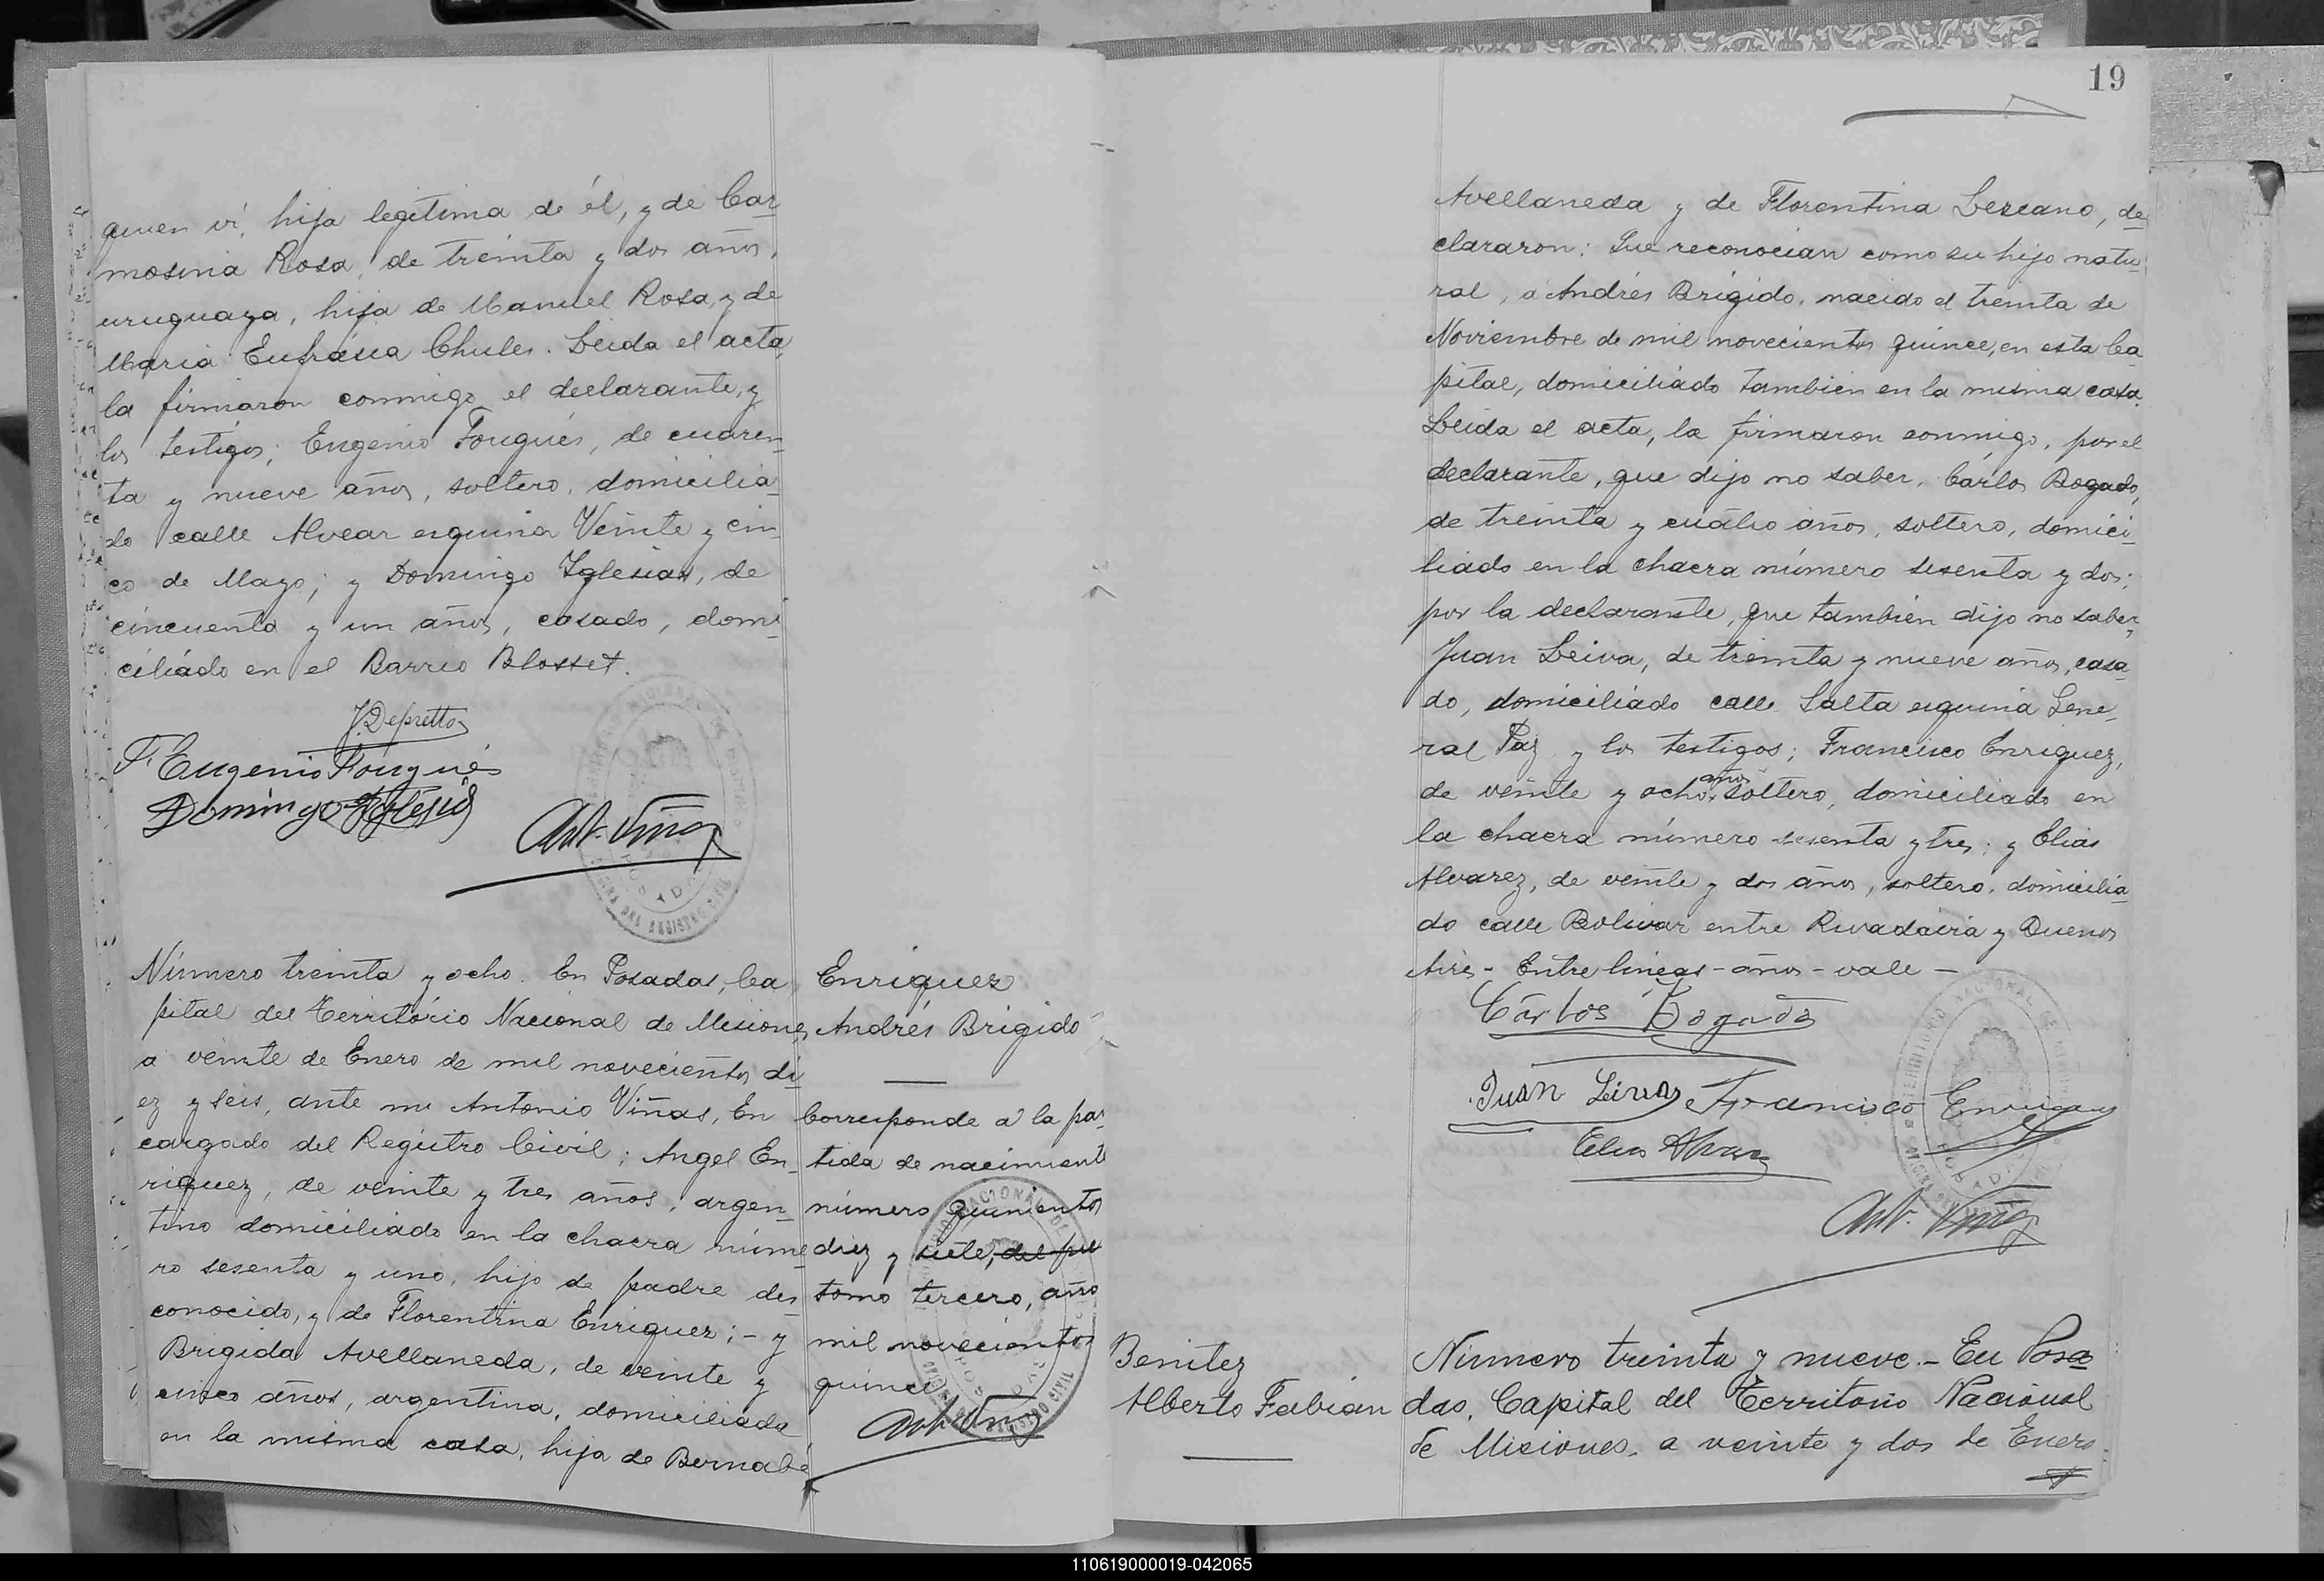 quien ví, hija legítima de él, y de Car
mosina Rosa, de treinta y dos años,
uruguaya, hija de Manuel Rosa, y de
María Eufrasia Chules. Leida el acta,
la firmaron conmigo el declarante, y
los testigos; Eugenio Fougués, de cuaren
ta y nueve años, soltero, domicilia
do calle Alvear esquina Veinte y cin
co de Mayo; y Domingo Iglesias, de
cincuenta y un años, casado, domi
ciliado en el Barrio Blosset.
J. Depretto
F. Eugenio Fougués
Domingo Iglesias
Ant. Viñas
Número treinta y ocho. En Posadas, Ca
pital del Territorio Nacional de Misiones
a veinte de Enero de mil novecientos di
ez y seis, ante mi Antonio Viñas, En
cargado del Registro Civil; Angel En
riquez, de veinte y tres años, argen
tino domiciliado en la chacra núme
ro sesenta y uno, hijo de padre des
conocido, y de Florentina Enriquez; - y
Brigida Avellaneda, de veinte y
cinco años, argentina, domiciliada
en la misma casa, hija de Bernabé
Enriquez
Andrés Brigido
Corresponde a la par
tida de nacimiento
número quinientos
diez y siete, del pre
tomo tercero, año
mil novecientos
quince
Ant. Viñas
19
Avellaneda y de Florentina Lezcano, de
clararon: Que reconocian como su hijo natu
ral, a Andrés Brigido, nacido el treinta de
Noviembre de mil novecientos quince, en esta Ca
pital, domiciliado tambien en la misma casa.
Leida el acta, la firmaron conmigo, por el
declarante, que dijo no saber, Cárlos Bogado,
de treinta y cuatro años, soltero, domici
liado en la chacra número sesenta y dos;
por la declarante, que también dijo no saber,
Juan Leiva, de treinta y nueve años, casa
do, domiciliado calle Salta esquina Gene
ral Paz y los testigos; Francisco Enriquez,
de veinte y ocho años soltero, domiciliado en
la chacra número sesenta y tres; y Elias
Alvarez, de veinte y dos años, soltero, domicilia
do calle Bolivar entre Rivadavia y Buenos
Aires - Entre lineas - años - vale -
Cárlos Bogado
Juan Leiva Francisco Enriquez
Elias Alvarez
Ant. Viñas
Benitez
Alberto Fabian
Número treinta y nueve. - En Posa
das, Capital del Territorio Nacional
de Misiones, a veinte y dos de Enero
110619000019-042065